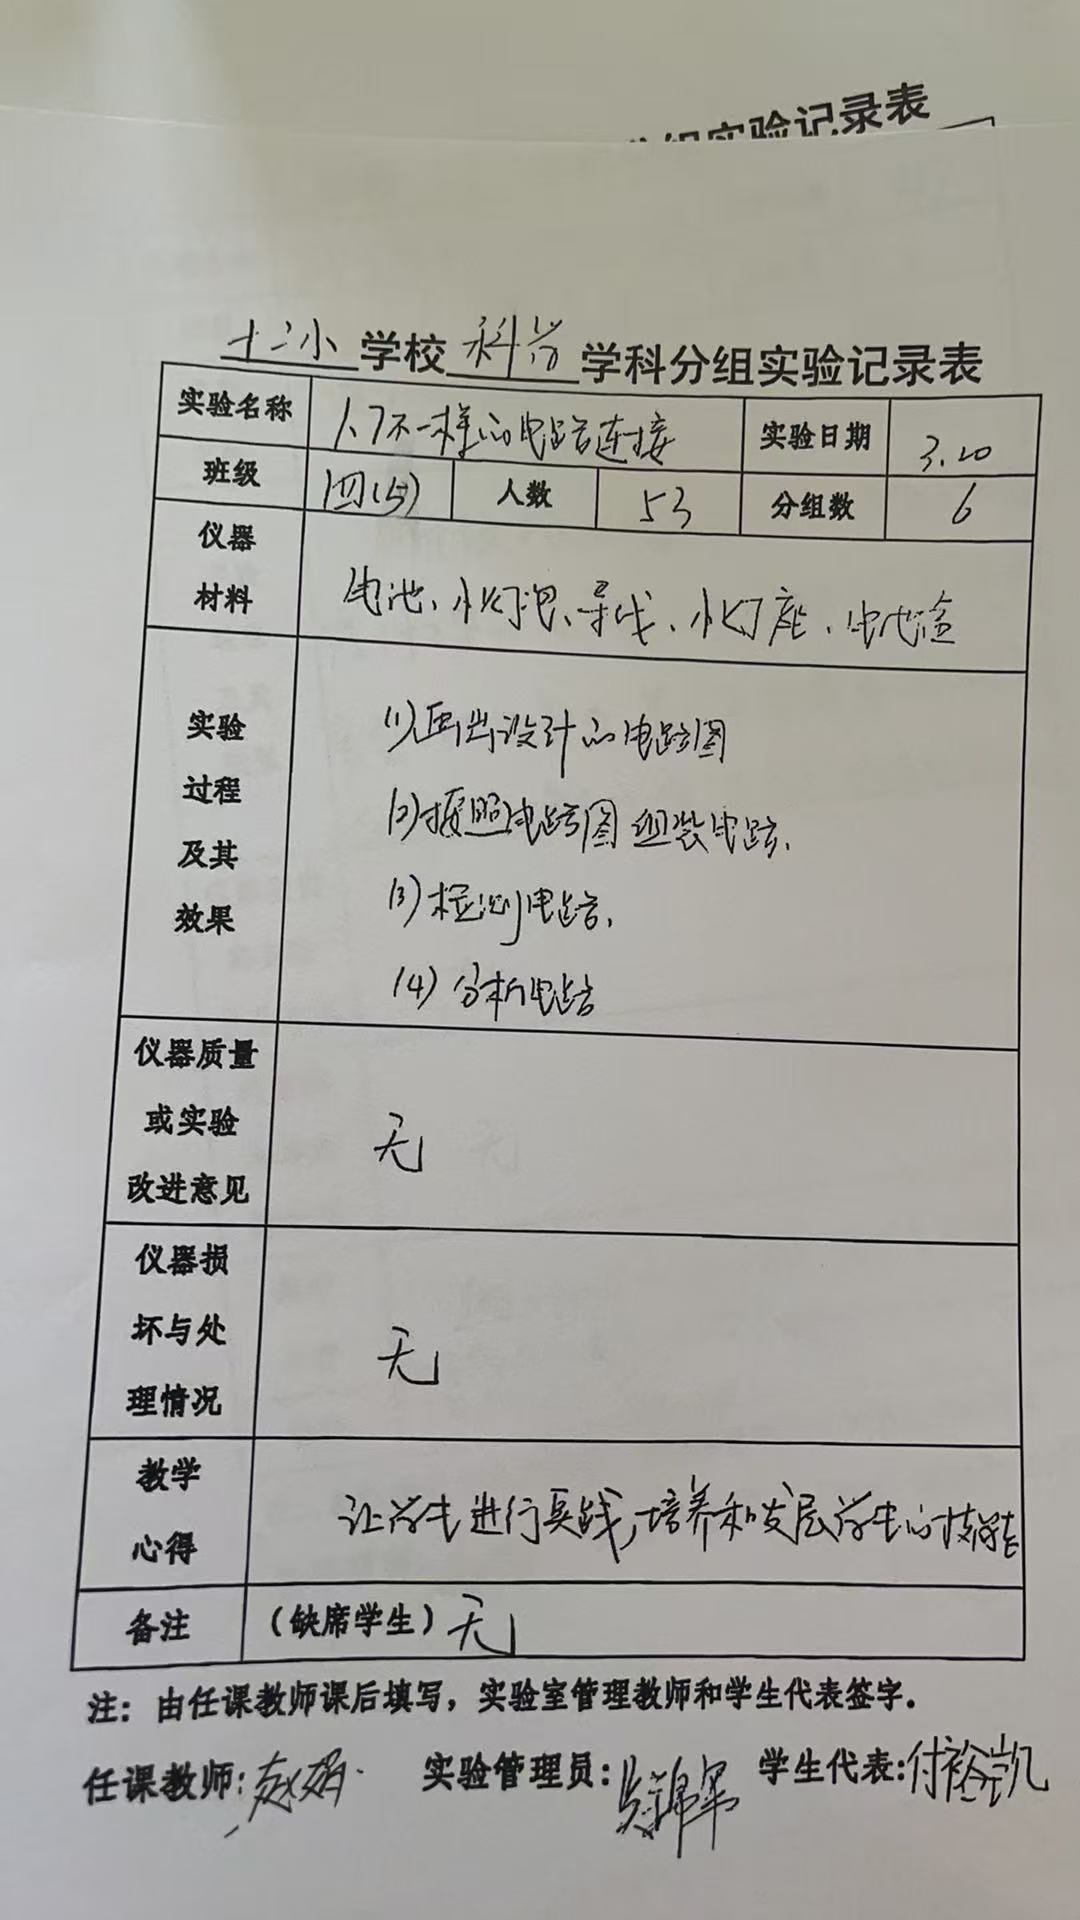 组实验记录表
十二小学校科学学科分组实验记录表
实验名称 1.7不一样的电路连接 实验日期 3.20
班级 四(5) 人数 53 分组数 6
仪器
材料
电池、小灯泡、导线、小灯座、电池盒
实验
过程
及其
效果
(1)画出设计的电路图
(2)按照电路图组装电路.
(3)检测电路.
(4)分析电路
仪器质量
或实验
改进意见
无
仪器损
坏与处
理情况
无
教学
心得
让学生进行实践,培养和发展学生的技能
备注 (缺席学生)无
注：由任课教师课后填写，实验室管理教师和学生代表签字.
任课教师:赵娟. 实验管理员: 学生代表:付裕凯